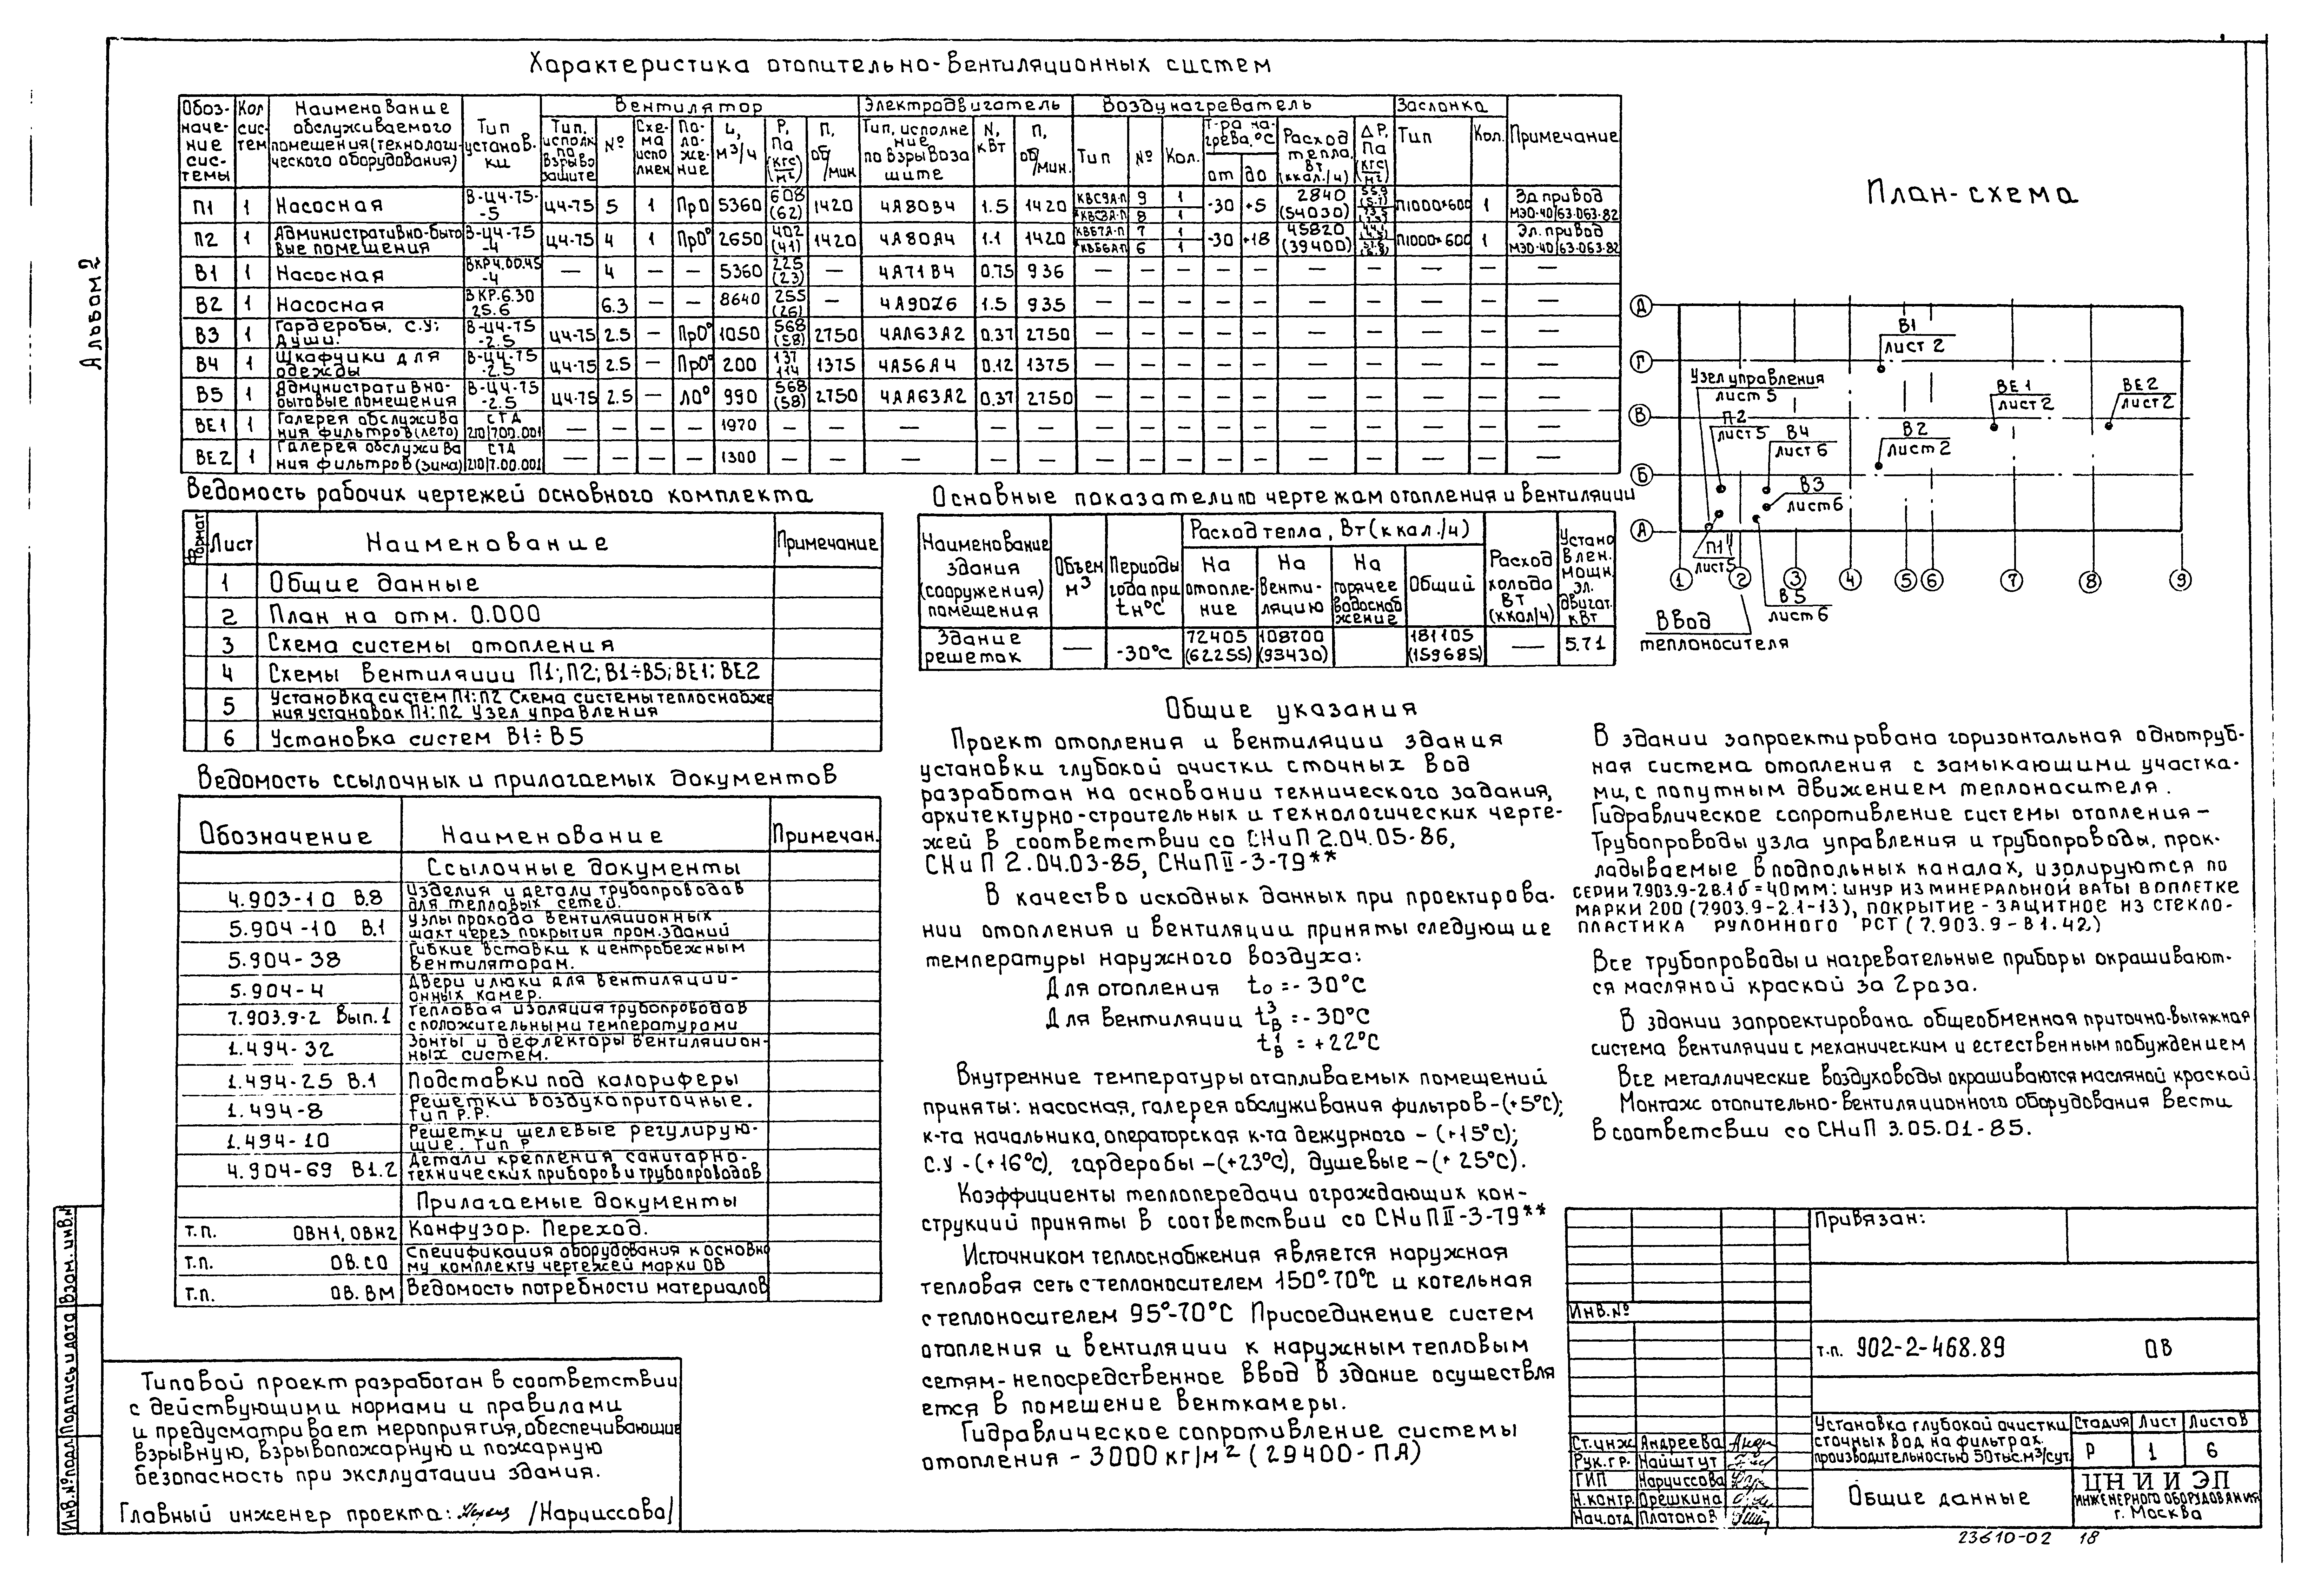 Альбом 2
Характеристика отопительно-вентиляционных систем
Обозначение системы | Кол систем | Наименование обслуживаемого помещения (технологического оборудования) | Тип установки | Вентилятор | Электродвигатель | Воздухонагреватель | Заслонка | Примечание
П1 1 Насосная В-Ц4-75-5 Ц4-75 5 1 Пр0 5360 608 (62) 1420 4А80В4 1.5 1420 9 1 8 1 -30 +5 2840 (54030) П1000×600 1 Эл привод МЭО-40/63-063-82
П2 1 Административно-бытовые помещения В-Ц4-75-4 Ц4-75 4 1 Пр0° 2650 402 (41) 1420 4А80А4 1.1 1420 7 1 6 1 -30 +18 45820 (39400) П1000×600 1 Эл. привод МЭО-40/63-063-82
В1 1 Насосная ВКР4.00.45-4 — 4 — — 5360 225 (23) — 4А71В4 0.75 936 — — — — — — — — — —
В2 1 Насосная ВКР.6.30 25.6 6.3 — — 8640 255 (26) — 4А90Z6 1.5 935 — — — — — — — — — —
В3 1 Гардеробы, с.у; Души. В-Ц4-75-2.5 Ц4-75 2.5 — Пр0° 1050 568 (58) 2750 4АА63А2 0.37 2750 — — — — — — — — — —
В4 1 Шкафчики для одежды В-Ц4-75-2.5 Ц4-75 2.5 — Пр0° 200 137 114 1375 4А56А4 0.12 1375 — — — — — — — — — —
В5 1 Административно-бытовые помещения В-Ц4-75-2.5 Ц4-75 2.5 — Л0° 990 568 (58) 2750 4АА63А2 0.37 2750 — — — — — — — — — —
ВЕ1 1 Галерея обслуживания фильтров (лето) СТД 210/700.001 — — — — 1970 — — — — — — — — — — — — — — —
ВЕ2 1 Галерея обслуживания фильтров (зима) СТД 210/7.00.001 — — — — 1300 — — — — — — — — — — — — — — —
План-схема
Д
Г
В
Б
А
В1
лист 2
Узел управления
лист 5
ВЕ1
лист 2
ВЕ2
лист 2
П2
лист 5
В4
лист 6
В2
лист 2
В3
лист 6
П1
лист 5
В5
лист 6
1 2 3 4 5 6 7 8 9
Ввод
теплоносителя
Ведомость рабочих чертежей основного комплекта
Формат | Лист | Наименование | Примечание
1 Общие данные
2 План на отм. 0.000
3 Схема системы отопления
4 Схемы вентиляции П1; П2; В1÷В5; ВЕ1; ВЕ2
5 Установка систем П1; П2 Схема системы теплоснабже
ния установок П1; П2 Узел управления
6 Установка систем В1÷В5
Основные показатели по чертежам отопления и вентиляции
Наименование здания (сооружения) помещения | Объем м³ | Периоды года при tн°С | Расход тепла, Вт (ккал./ч) | На отопление | На вентиляцию | На горячее водоснабжение | Общий | Расход холода Вт (ккал/ч) | Установлен. мощн. эл. двигат. кВт
Здание решеток — -30°С 72405 (62255) 108700 (93430) 181105 (159685) — 5.71
Ведомость ссылочных и прилагаемых документов
Обозначение | Наименование | Примечан.
Ссылочные документы
4.903-10 В.8 Изделия и детали трубопроводов
для тепловых сетей.
5.904-10 В.1 Узлы прохода вентиляционных
шахт через покрытия пром.зданий
5.904-38 Гибкие вставки к центробежным
вентиляторам.
5.904-4 Двери и люки для вентиляци-
онных камер.
7.903.9-2 Вып.1 Тепловая изоляция трубопроводов
с положительными температурами
1.494-32 Зонты и дефлекторы вентиляцион-
ных систем.
1.494-25 В.1 Подставки под калориферы
1.494-8 Решетки воздухоприточные.
Тип Р.Р.
1.494-10 Решетки щелевые регулирую-
щие. Тип Р
4.904-69 В1.2 Детали крепления санитарно-
технических приборов и трубопроводов
Прилагаемые документы
т.п. ОВН1, ОВН2 Конфузор. Переход.
т.п. ОВ.СО Спецификация оборудования к основно
му комплекту чертежей марки ОВ
т.п. ОВ.ВМ Ведомость потребности материалов
Общие указания
Проект отопления и вентиляции здания
установки глубокой очистки сточных вод
разработан на основании технического задания,
архитектурно-строительных и технологических черте-
жей в соответствии со СНиП 2.04.05-86,
СНиП 2.04.03-85, СНиП II-3-79**
В качество исходных данных при проектирова-
нии отопления и вентиляции приняты следующие
температуры наружного воздуха:
Для отопления tо = -30°С
Для вентиляции tВ³ = -30°С
tВ¹ = +22°С
Внутренние температуры отапливаемых помещений
приняты: насосная, галерея обслуживания фильтров-(+5°С);
к-та начальника, операторская к-та дежурного - (+15°С);
С.У -(+16°С), гардеробы -(+23°С), душевые -(+ 25°С).
Коэффициенты теплопередачи ограждающих кон-
струкций приняты в соответствии со СНиП II-3-79**
Источником теплоснабжения является наружная
тепловая сеть с теплоносителем 150°-70°С и котельная
с теплоносителем 95°-70°С Присоединение систем
отопления и вентиляции к наружным тепловым
сетям-непосредственное ввод в здание осуществля
ется в помещение венткамеры.
Гидравлическое сопротивление системы
отопления - 3000 кг/м² (29400-ПА)
В здании запроектирована горизонтальная однотруб-
ная система отопления с замыкающими участка-
ми, с попутным движением теплоносителя.
Гидравлическое сопротивление системы отопления -
Трубопроводы узла управления и трубопроводы, прок-
ладываемые в подпольных каналах, изолируются по
серии 7.903.9-2 в.1 б=40мм: шнур из минеральной ваты в оплетке
марки 200 (7.903.9-2.1-13), покрытие-защитное из стекло-
пластика рулонного РСТ (7.903.9-В1.42)
Все трубопроводы и нагревательные приборы окрашивают-
ся масляной краской за 2 раза.
В здании запроектирована общеобменная приточно-вытяжная
система вентиляции с механическим и естественным побуждением
Все металлические воздуховоды окрашиваются масляной краской.
Монтаж отопительно-вентиляционного оборудования вести
в соответсвии со СНиП 3.05.01-85.
Типовой проект разработан в соответствии
с действующими нормами и правилами
и предусматривает мероприятия, обеспечивающие
взрывную, взрывопожарную и пожарную
безопасность при эксплуатации здания.
Главный инженер проекта: /Нарциссова/
Инв.№подл Подпись и дата Взам. инв.№
Привязан:
Инв.№
т.п. 902-2-468.89 ОВ
Ст.инж Андреева
Рук.гр. Найштут
ГИП Нарциссова
Н.контр. Орешкина
Нач.отд Платонов
Установка глубокой очистки
сточных вод на фильтрах.
производительностью 50тыс.м³/сут.
Стадия Лист Листов
Р 1 6
Общие данные
ЦНИИЭП
инженерного оборудования
г. Москва
23610-02 18